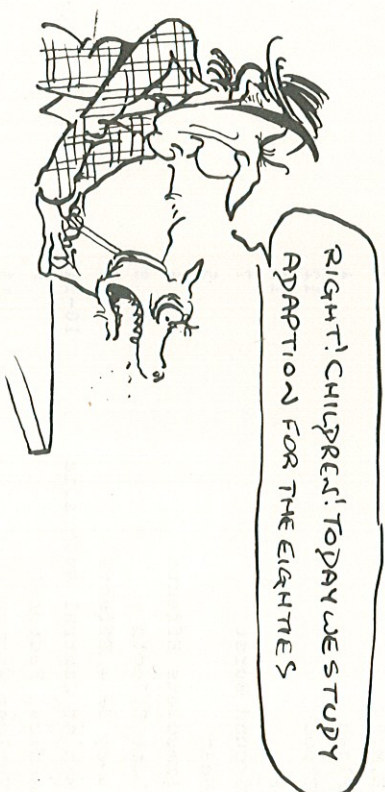 RIGHT! CHILDREN! TODAY WE STUDY
ADAPTION FOR THE EIGHTIES